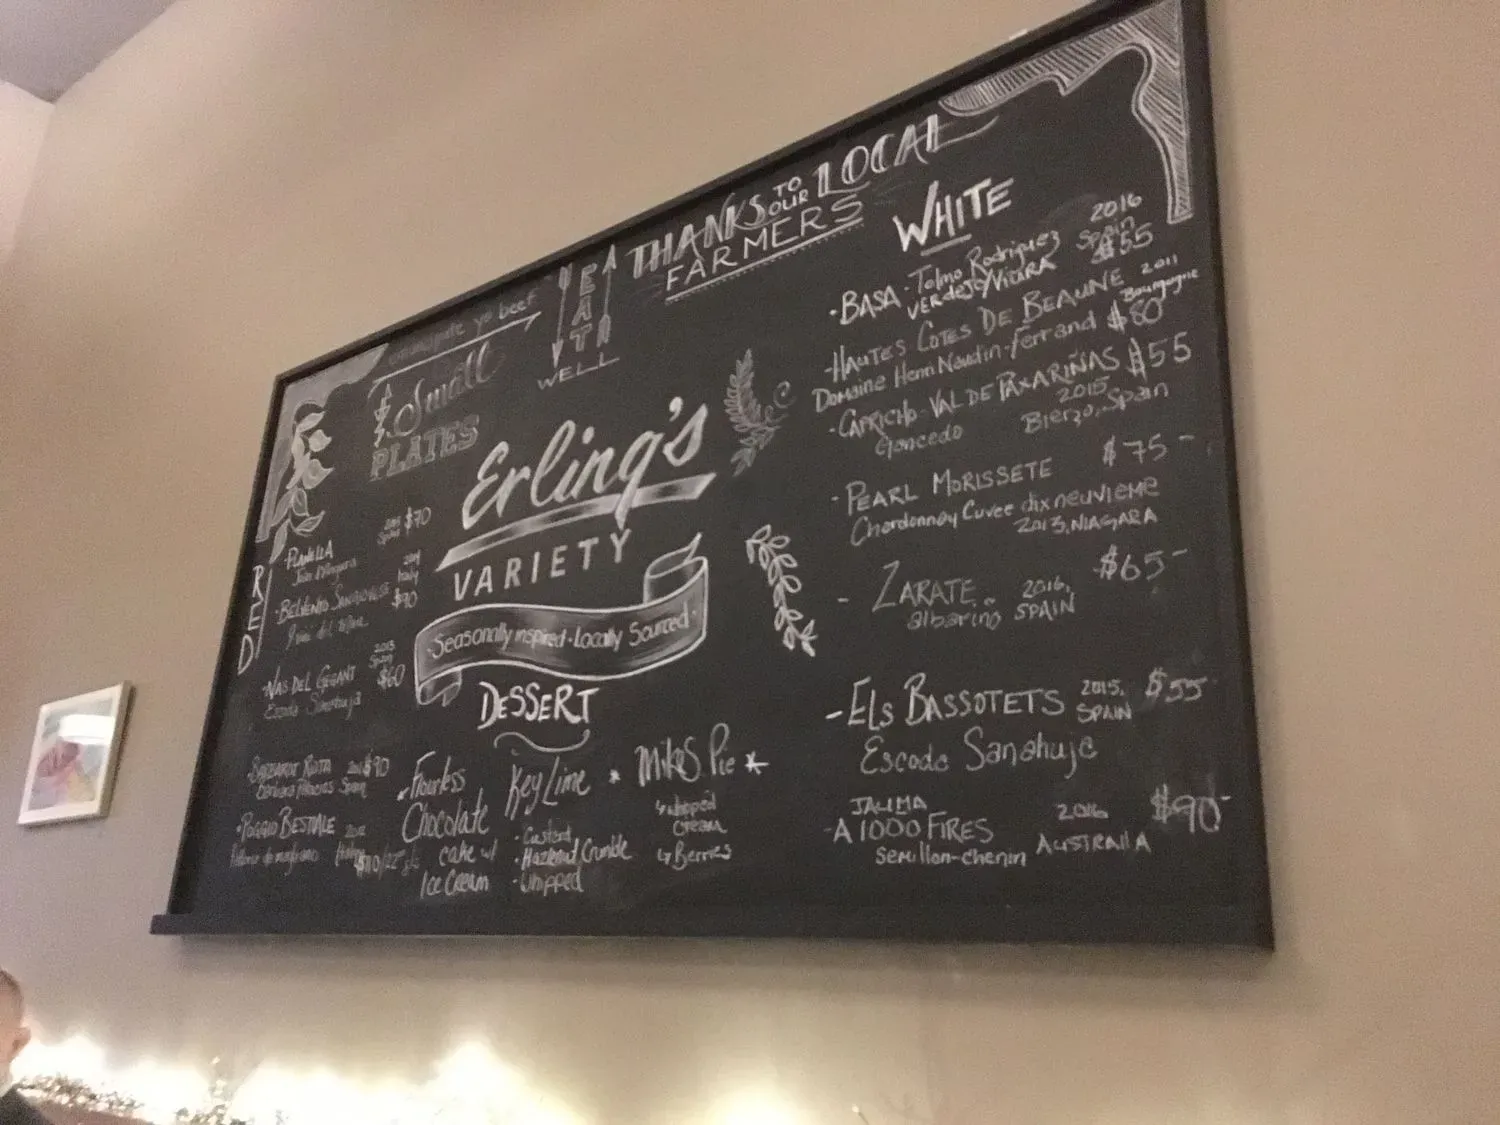 THANKS TO OUR LOCAL
FARMERS
EAT
WELL
yo beef
Small
PLATES
Erling's
VARIETY
Seasonally inspired · Locally Sourced
RED
PLANELLA $70
Joan d'Anguera Spain
· BELVENTO SANGIOVESE Italy
$90
· NAS DEL GEGANT 2013 Spain
Escoda Sanahuja $60
$90
Spain
· POGGIO BESTIALE
DESSERT
Flourless
Chocolate
cake w/
Ice Cream
Key Lime
· Custard
· Hazelnut Crumble
· Whipped
* Mike's Pie *
whipped
cream
Berries
WHITE
· BASA - Telmo Rodriguez 2016 Spain
VERDEJO/VIURA $55
· HAUTES COTES DE BEAUNE 2011 Bourgogne
Domaine Henri Naudin-Ferrand $80
· CAPRICHO - VAL DE PAXARIÑAS $55
Goncedo 2015, Bierzo, Spain
- PEARL MORISSETE $75-
Chardonnay Cuvee dix neuvieme
2013, NIAGARA
- ZARATE 2016, $65-
albarino SPAIN
- ELS BASSOTETS 2015, SPAIN $55
Escoda Sanahuje
JAUMA
- A 1000 FIRES 2016 $90-
Semillon-chenin AUSTRALIA